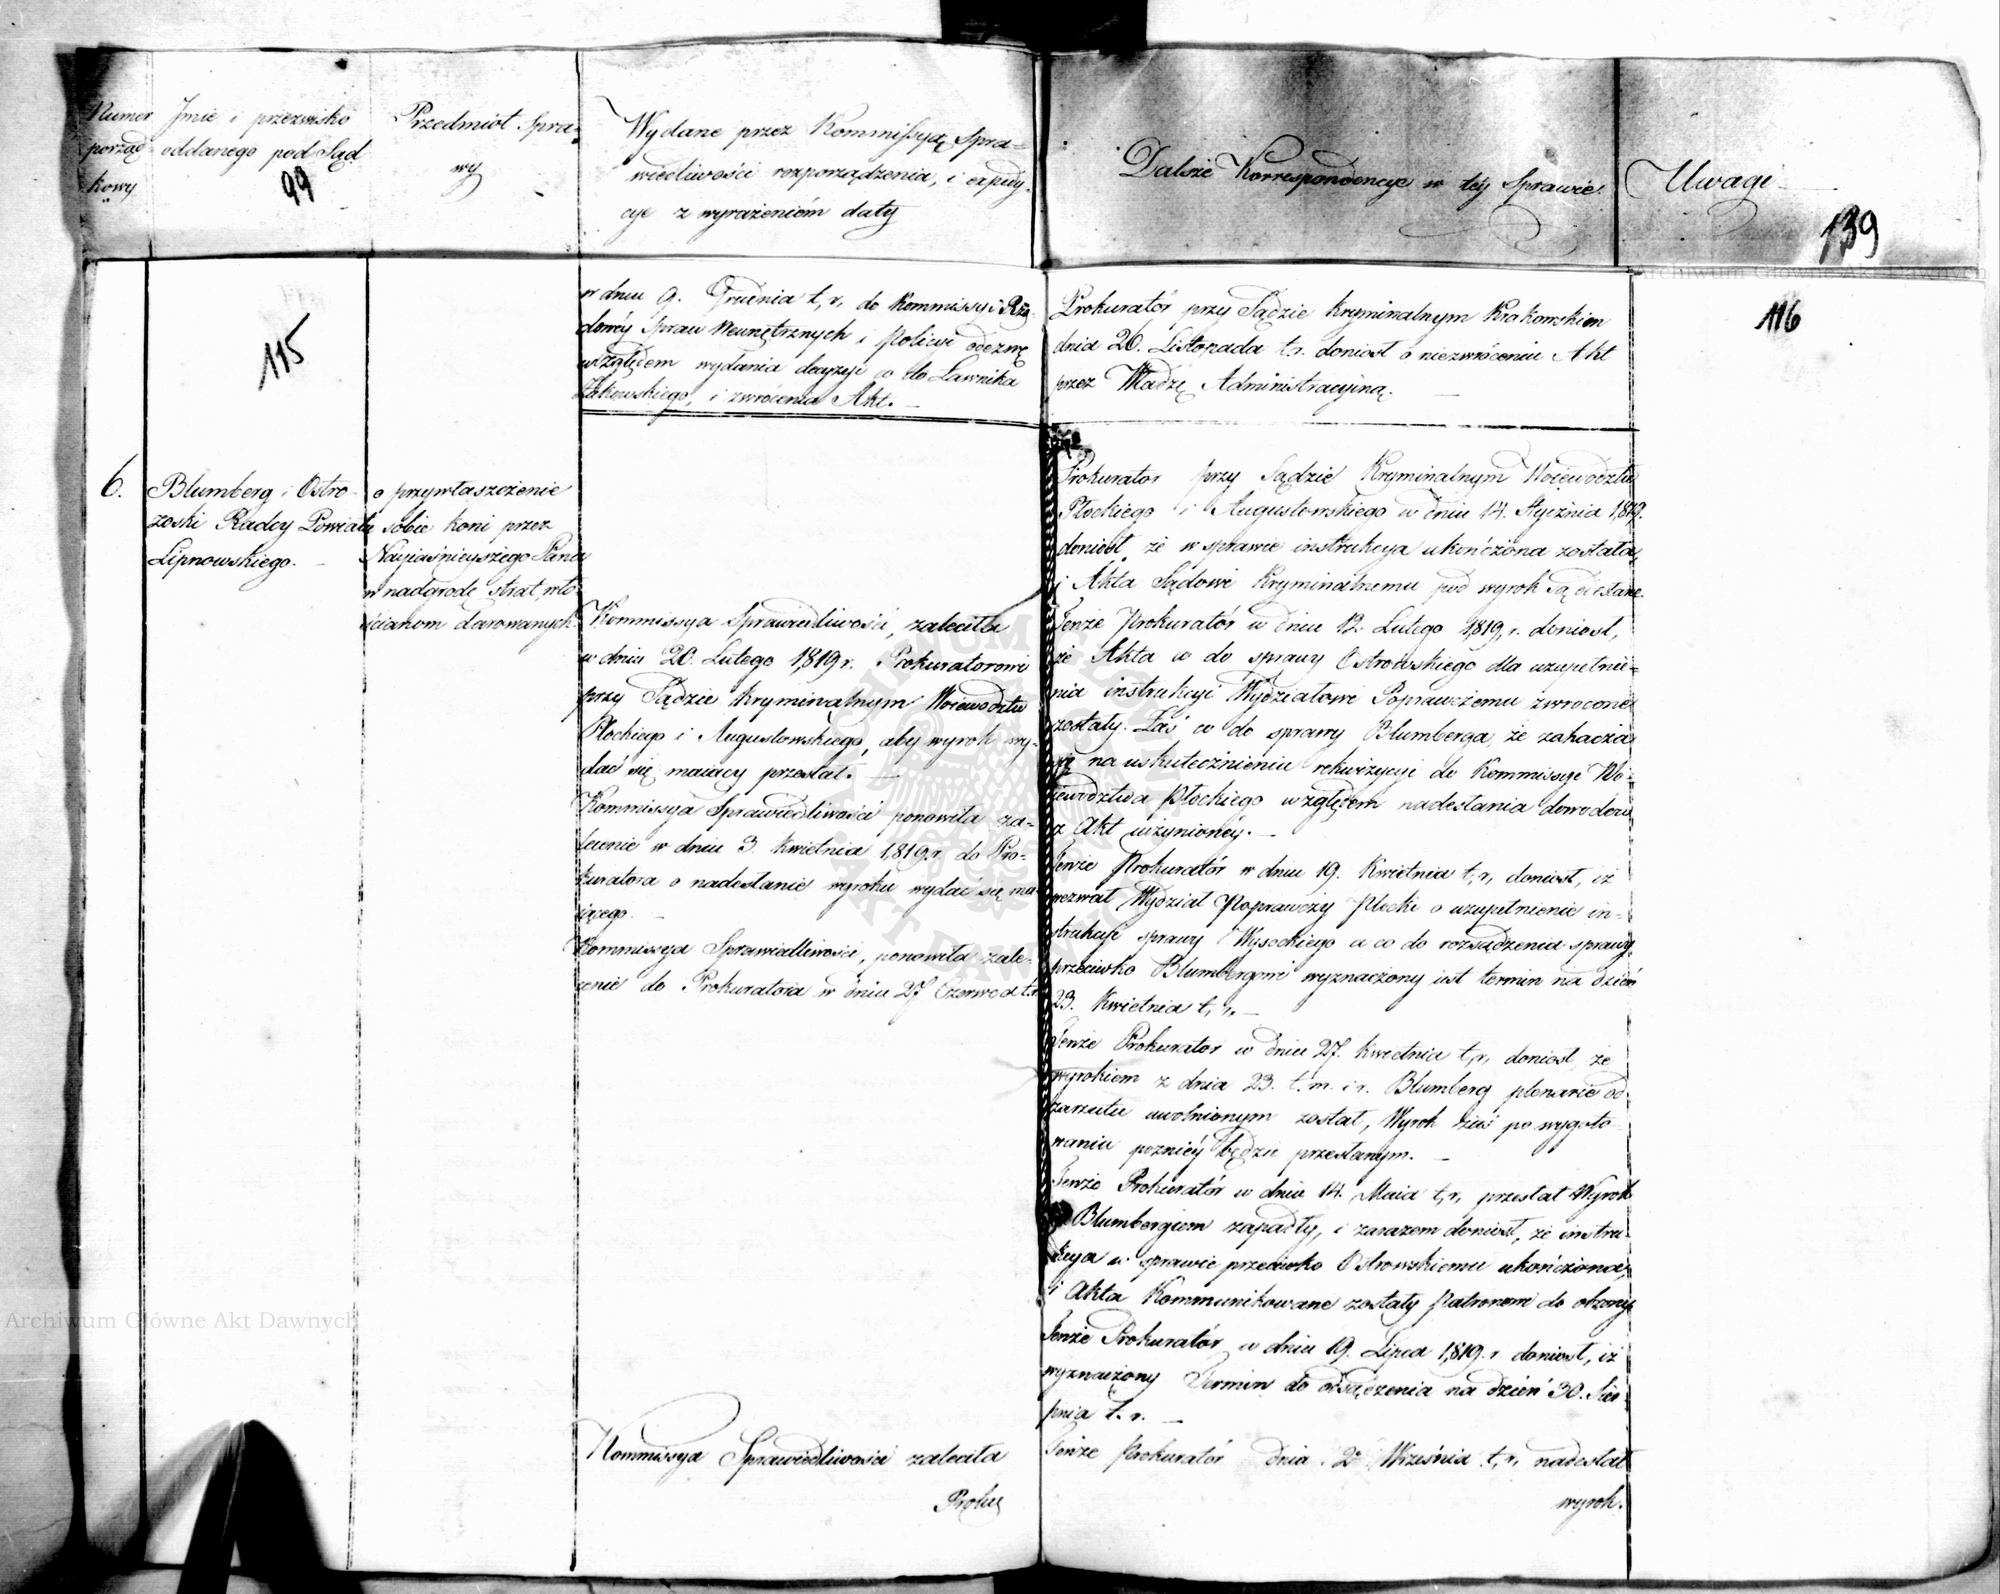 Numer
porząd-
kowy
Jmie i przezwisko
oddanego pod Sąd
99
Przedmiot Spra-
wy
Wydane przez Kommissyą Spra-
wiedliwości rozporządzenia, i expedy-
cye z wyrażeniem daty
Dalsze Korrespondencye w tey Sprawie.
Uwagi
139
Archiwum Główne Akt Dawnych
115
w dniu 9. Grudnia t, r, do Kommissyi Rzą-
dowéy Spraw Wewnętrznych i Policyi odezwę
względem wydania decyzyi co do Ławnika
Żukowskiego, i zwrócenia Akt.
Prokuratór przy Sądzie Kryminalnym Krakowskim
dnia 26. Listopada t. r. doniosł o niezwróceniu Akt
przez Władzę Administracyiną.
116
6.
Blumberg i Ostro-
zoski Radcy Powiatu
Lipnowskiego.
o przywłaszczenie
sobie koni przez
Nayiaśnieyszego Pana
w nadgrodę strat, wło-
ścianom darowanych.
Kommissya Sprawiedliwości, zaleciła
w dniu 20. Lutego 1819 r. Prokuratorowi
przy Sądzie Kryminalnym Woiewództw
Płockiego i Augustowskiego, aby wyrok wy-
dać się maiący przesłał.
Kommissya Sprawiedliwości ponowiła za-
lecenie w dniu 3. Kwietnia 1819 r. do Pro-
kuratora o nadesłanie wyroku wydać się ma-
iącego.
Kommissya Sprawiedliwości, ponowiła zale-
cenie do Prokuratora w dniu 27 Czerwca t. r.
Kommissya Sprawiedliwości zaleciła
Proku
Prokurator przy Sądzie Kryminalnym Woiewództw
Płockiego i Augustowskiego w dniu 14. Stycznia 1819.
doniosł, że w sprawie instrukcya ukończona została,
i Akta Sądowi Kryminalnemu pod wyrok są odesłane.
Tenże Prokuratór w dniu 12. Lutego 1819, r. doniosł,
że Akta co do sprawy Ostrowskiego dla uzupełnie-
nia instrukcyi Wydziałowi Poprawczemu zwrócone
zostały. Zaś co do sprawy Blumberga, że zahacza
się na uskutecznieniu rekwizycyi do Kommissyi Wo-
iewództwa Płockiego względem nadesłania dowodów
z Akt uczynionéy.
Tenże Prokuratór w dniu 19. Kwietnia t, r, doniosł, iż
wezwał Wydział Poprawczy Płocki o uzupełnienie in-
strukcyi sprawy Wysockiego a co do rozsądzenia sprawy
przeciwko Blumbergowi wyznaczony iest termin na dzień
23. Kwietnia t, r.
Tenże Prokurator w dniu 27. Kwietnia t, r, doniosł, że
wyrokiem z dnia 23. t. m. i r. Blumberg plenarie od
zarzutu uwolnionym został, Wyrok zaś po wygoto-
waniu pozniéy będzie przesłanym.
Tenże Prokuratór w dniu 14. Maia t, r, przesłał Wyrok
Blumbergiem zapadły, i zarazem doniosł, że instru-
kcya w sprawie przeciwko Ostrowskiemu ukończona,
i Akta Kommunikowane zostały Patronom do obrony.
Tenże Prokuratór w dniu 19. Lipca 1,819. r doniosł, iż
wyznaczony Termin do osądzenia na dzień 30. Sier-
pnia t. r.
Tenże Prokuratór dnia 2 Września t, r, nadesłał
wyrok.
Archiwum Główne Akt Dawnych